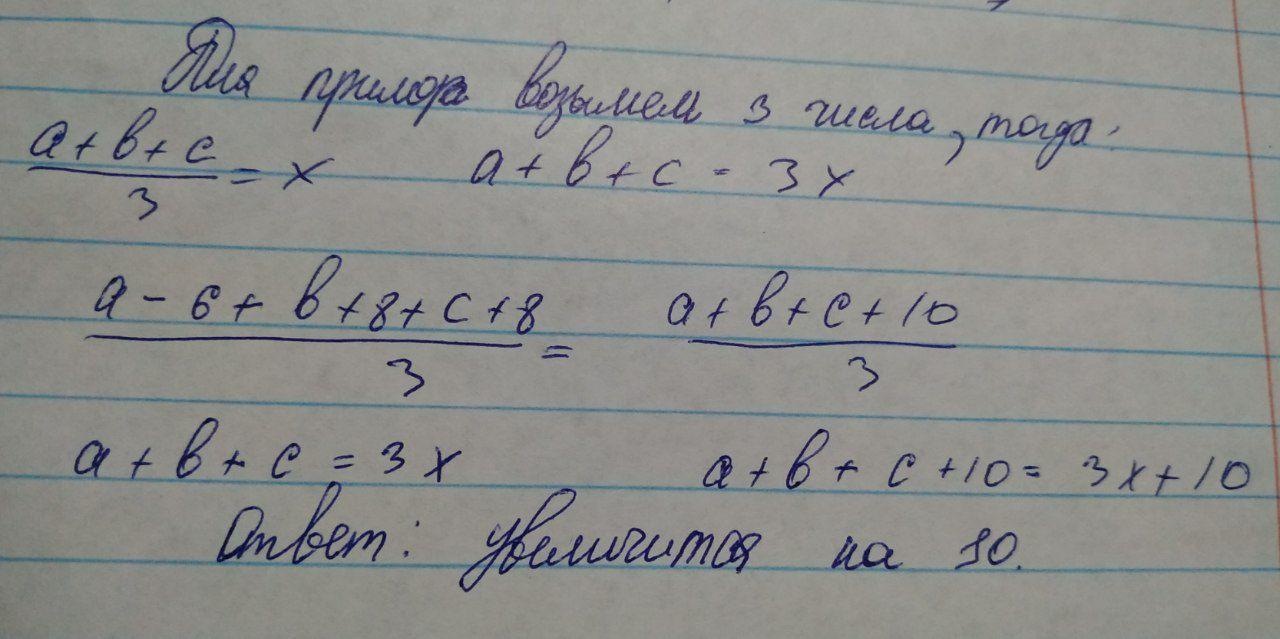 Для примера возьмем 3 числа, тогда:
a + b + c / 3 = x a + b + c = 3x
a - 6 + b + 8 + c + 8 / 3 = a + b + c + 10 / 3
a + b + c = 3x a + b + c + 10 = 3x + 10
Ответ: увеличится на 10.